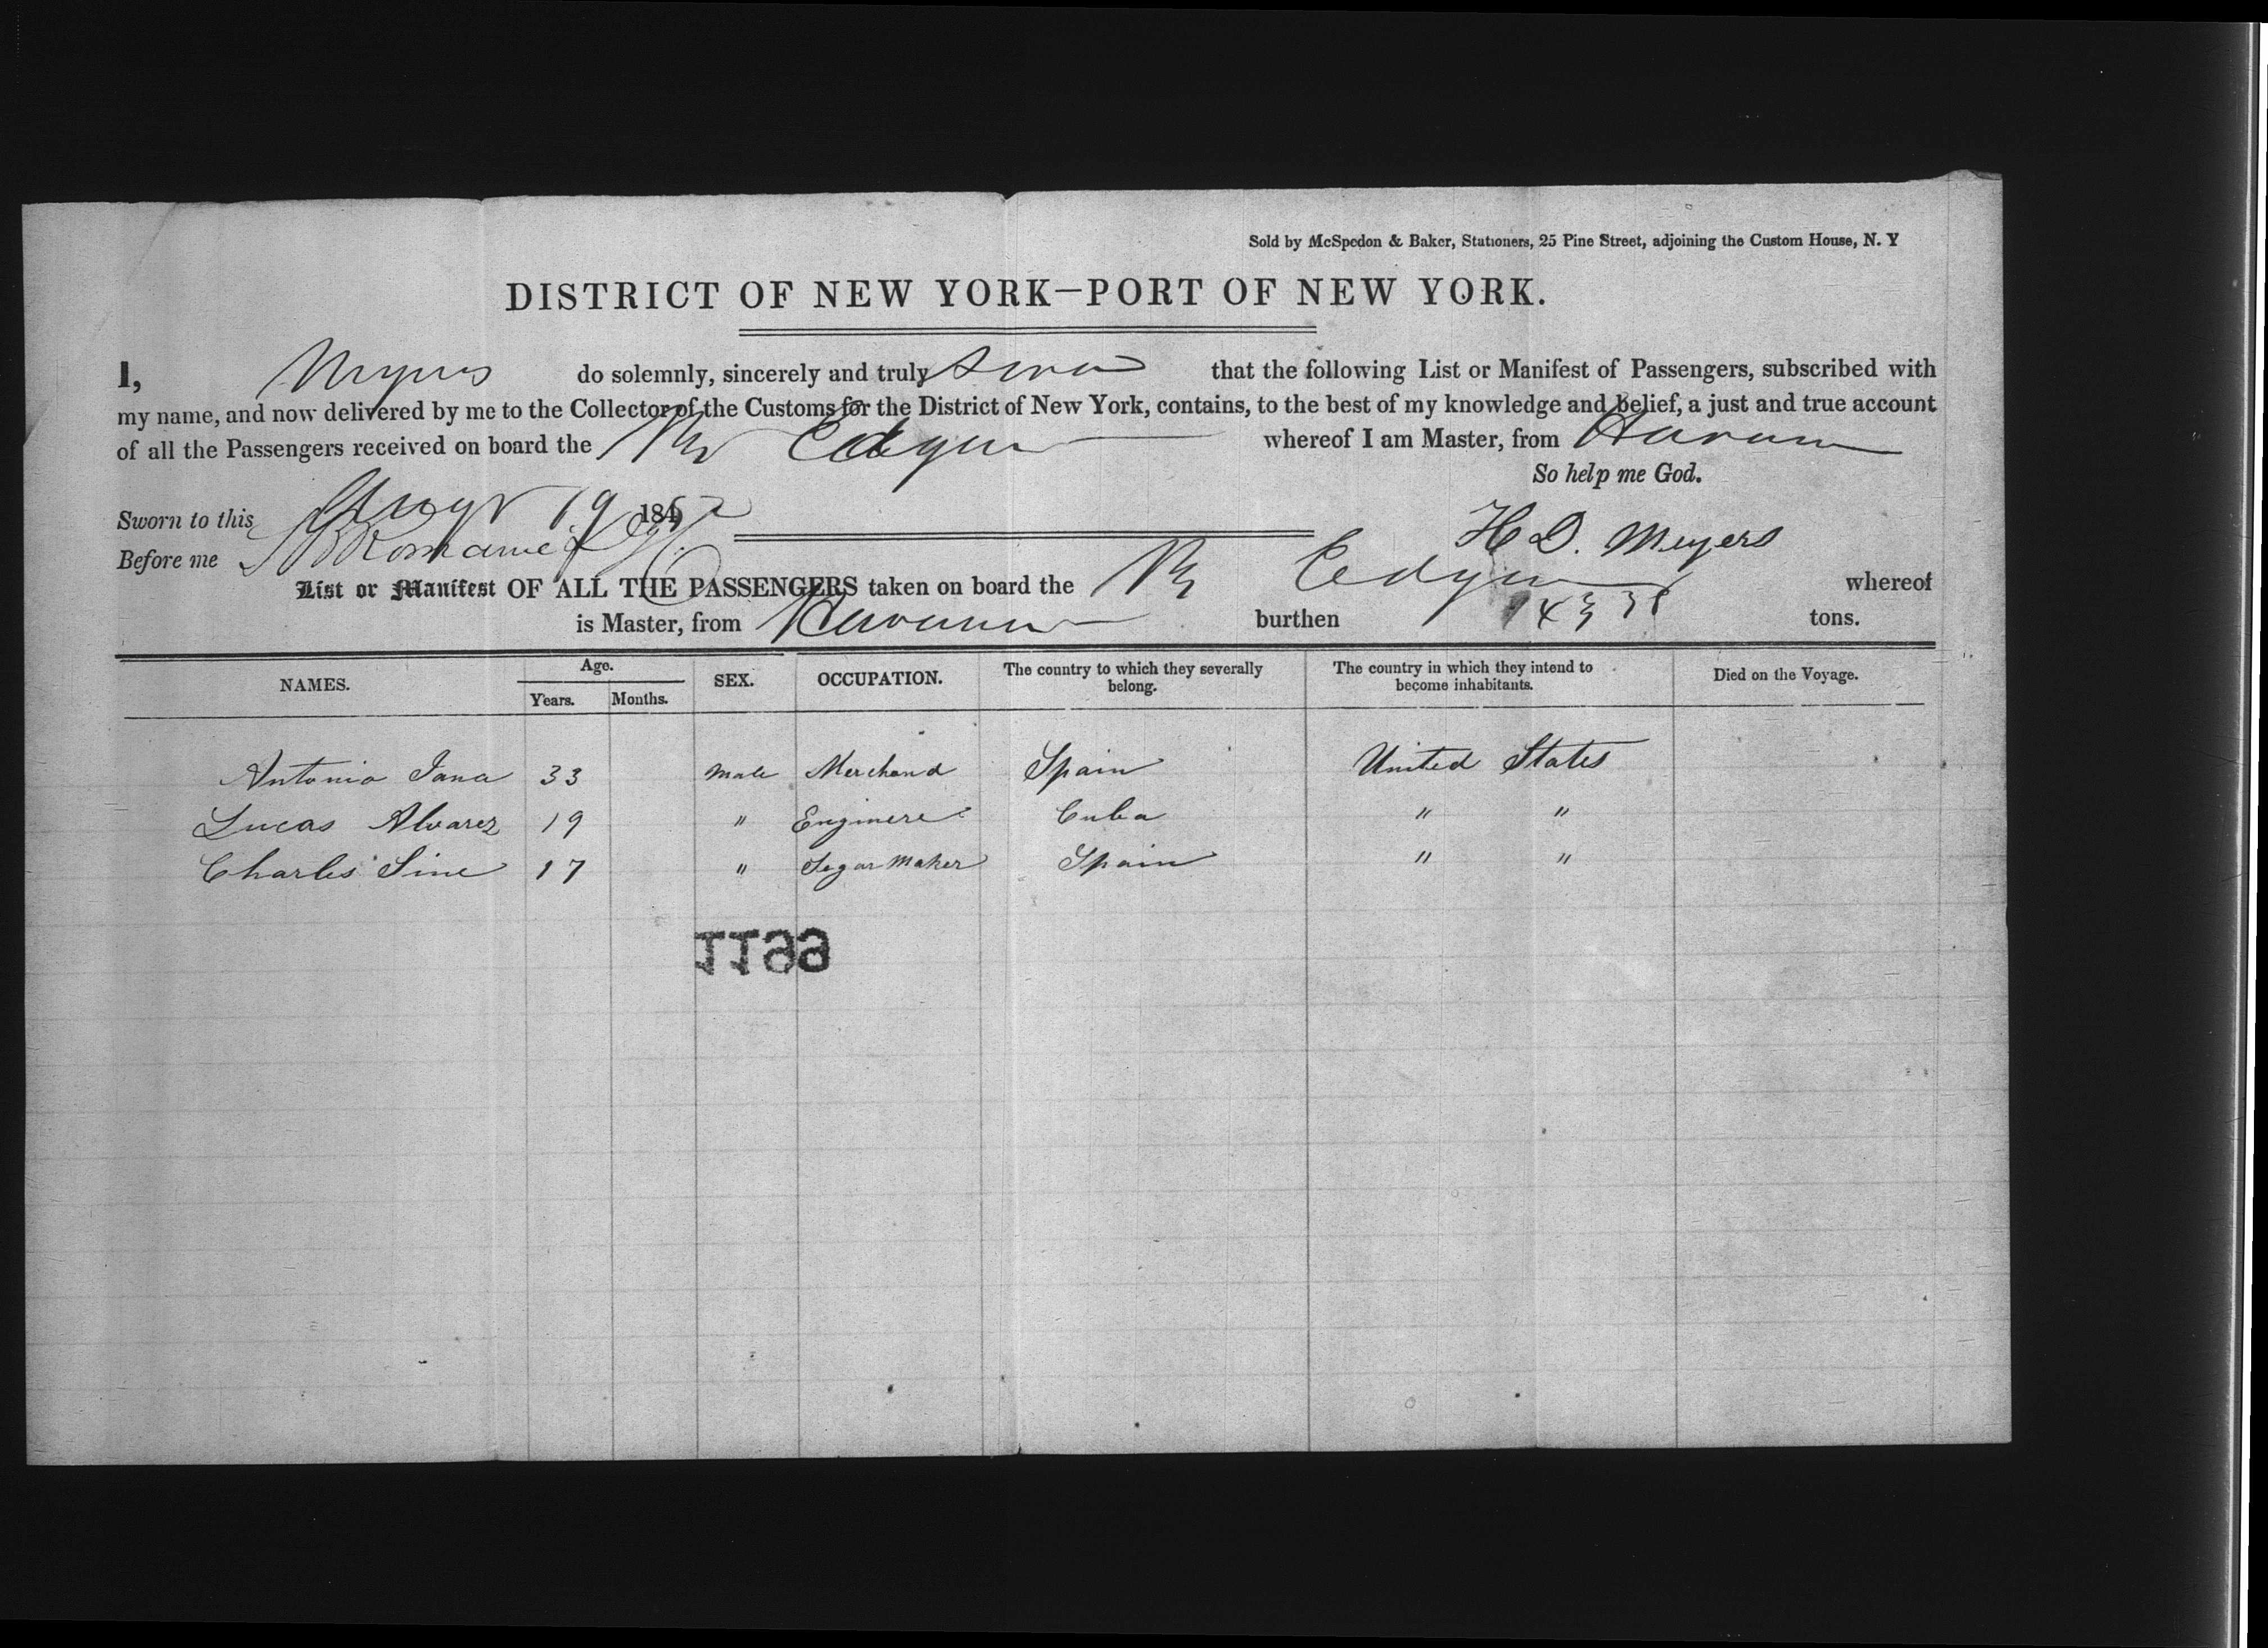 Sold by McSpedon & Baker, Stationers, 25 Pine Street, adjoining the Custom House, N. Y
DISTRICT OF NEW YORK—PORT OF NEW YORK.
I, Meyers do solemnly, sincerely and truly swear that the following List or Manifest of Passengers, subscribed with
my name, and now delivered by me to the Collector of the Customs for the District of New York, contains, to the best of my knowledge and belief, a just and true account
of all the Passengers received on board the whereof I am Master, from Havana
So help me God.
Sworn to this 19 185
Before me
H D. Meyers
List or Manifest OF ALL THE PASSENGERS taken on board the whereof
is Master, from Havana burthen tons.
NAMES. Age. Years. Months. SEX. OCCUPATION. The country to which they severally belong. The country in which they intend to become inhabitants. Died on the Voyage.
Antonio Jana 33 Male Merchand Spain United States
Lucas Alvarez 19 " Enginere Cuba " "
Charles Sine 17 " Segar Maker Spain " "
1199